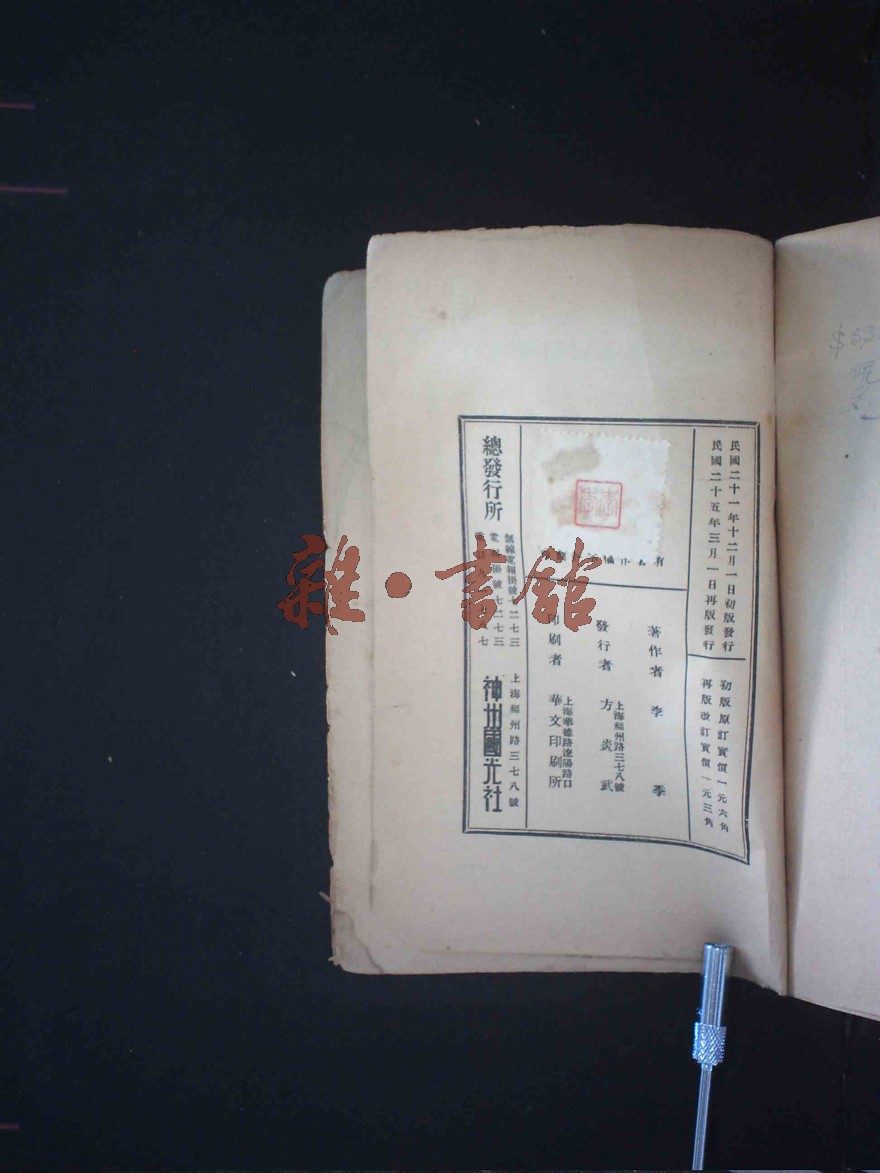 民國二十一年十二月一日初版發行
民國二十五年三月一日再版發行
初版原訂實價一元六角
再版改訂實價一元三角
著作者 李 季
發行者 上海福州路三七八號
方炎武
印刷者 上海華德路遼陽路口
華文印刷所
總發行所
上海福州路三七八號
神州國光社
無線電報掛號七二七三
掛號七二七三
雜·書館